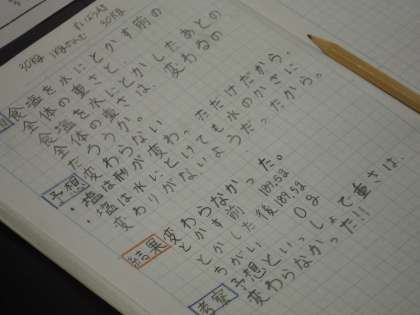 食塩を水にとかす前の
全体の重さと、
食塩を水にとかしたあとの
全体の重さは、変わるの
だろうか。
予想 変わらない
・塩は形が変わっただけだから。
・塩は水にとけても水のかさに
変わりがないようだったから。
結果 変わらなかった。
とかす前 189.5g
とかした後 189.5g
ちがい 0g
考察 予想といっしょで重さは、
変わらなかった!!